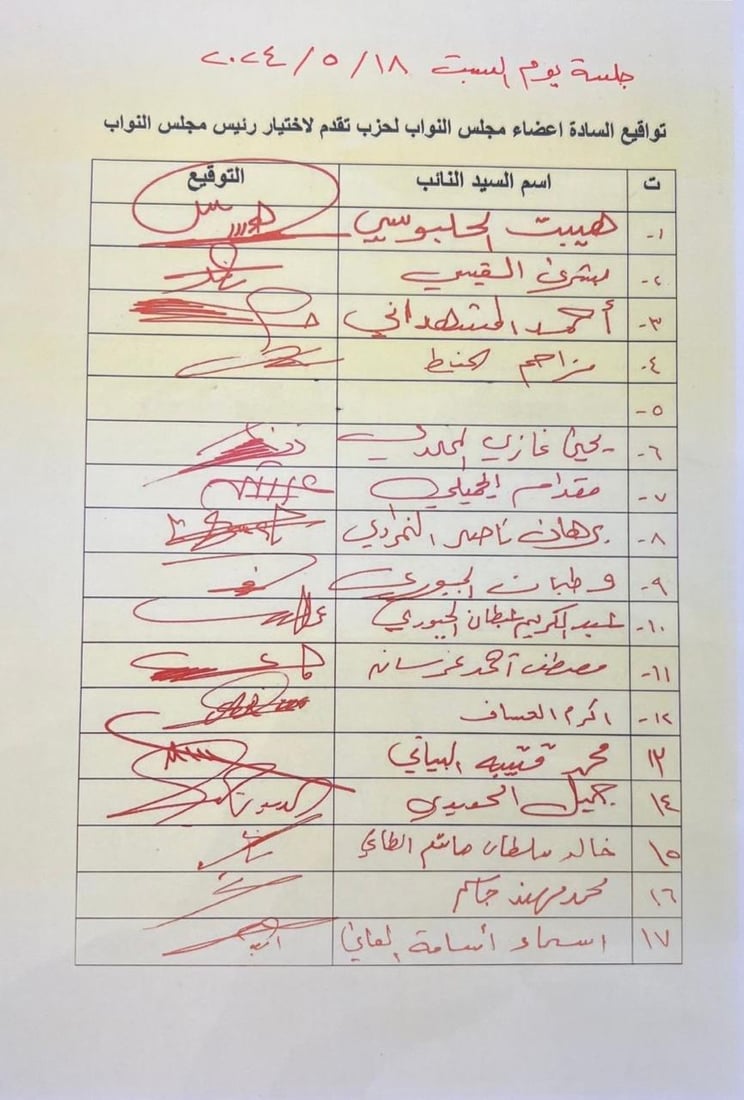 جلسة يوم السبت ٢٠٢٤/٥/١٨
تواقيع السادة اعضاء مجلس النواب لحزب تقدم لاختيار رئيس مجلس النواب
ت اسم السيد النائب التوقيع
١- هيبت الحلبوسي
٢- بشرى القيسي
٣- أحمد المشهداني
٤- مزاحم الخياط
٥-
٦- يحيى غازي المحمدي
٧- مقدام الجميلي
٨- برهان ناصر النمراوي
٩- وطبان الجبوري
١٠- عبد الكريم عبطان الجبوري
١١- مصطفى احمد عرسان
١٢- اكرم العساف
١٣ محمد قتيبه البياتي
١٤ جميل
١٥ خالد سلطان هاشم الطائي
١٦ محمد مهند جاسم
١٧ اسماء أسامة العاني